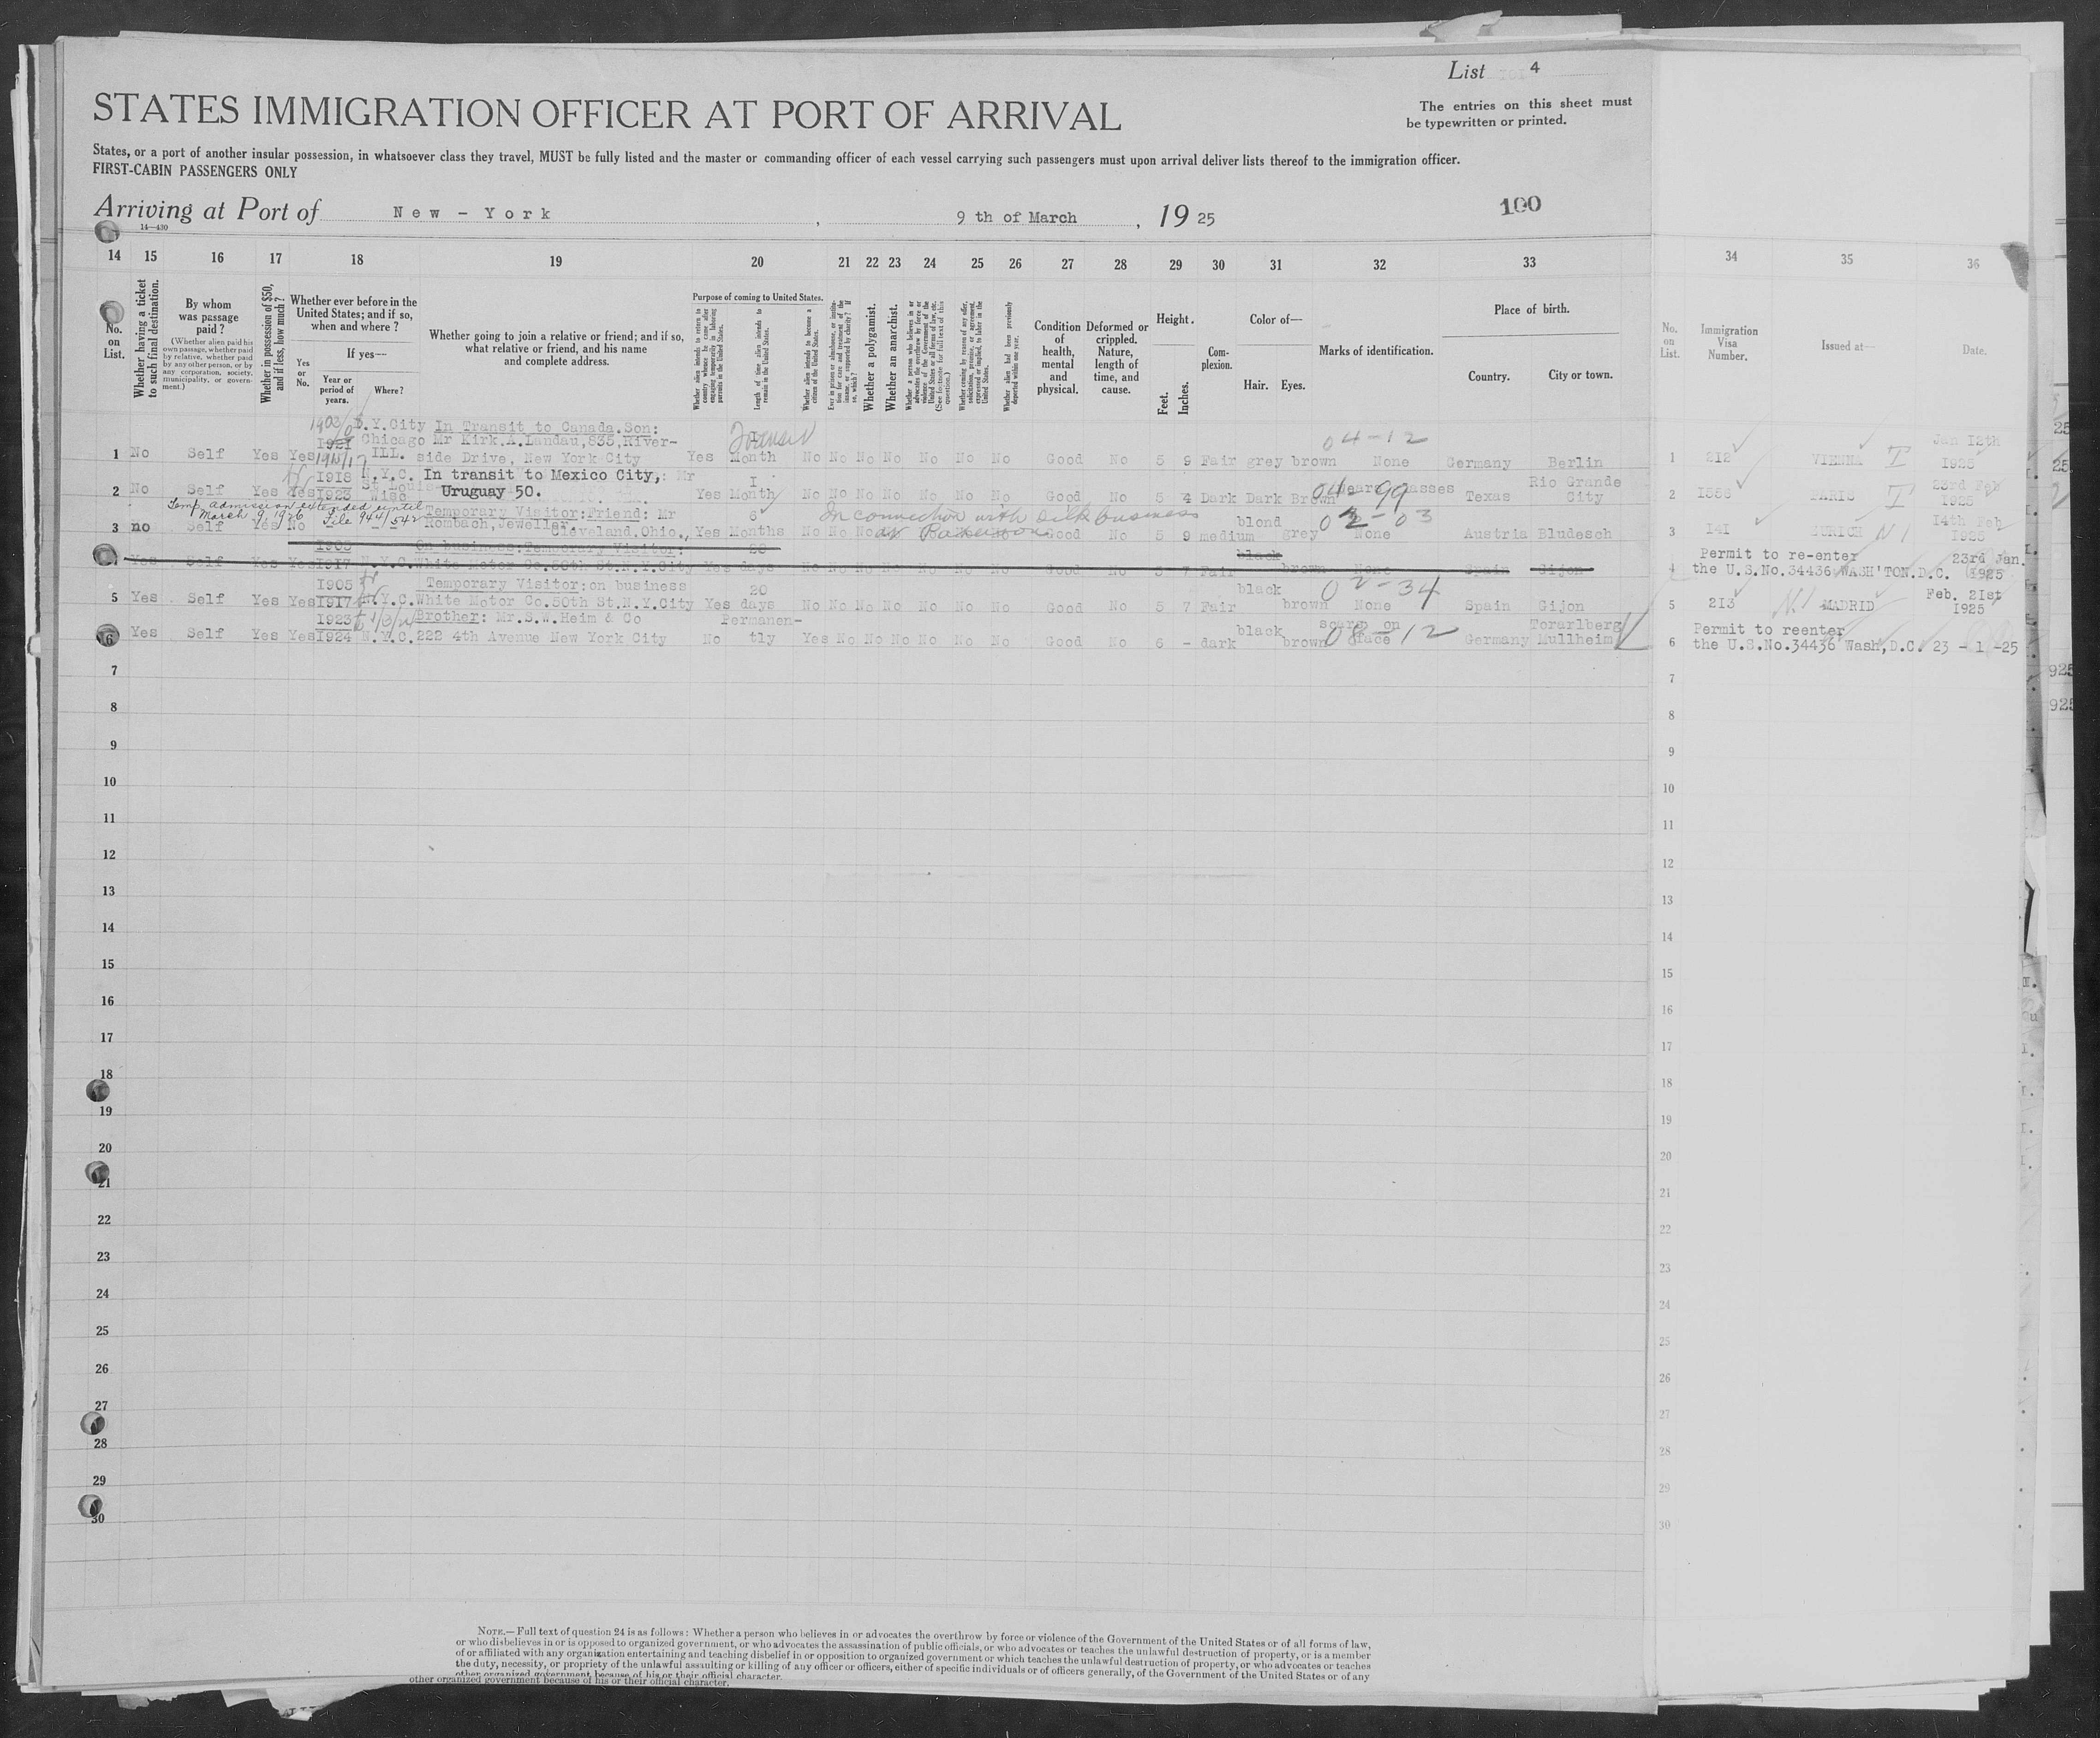 List 4
The entries on this sheet must
be typewritten or printed.
STATES IMMIGRATION OFFICER AT PORT OF ARRIVAL
States, or a port of another insular possession, in whatsoever class they travel, MUST be fully listed and the master or commanding officer of each vessel carrying such passengers must upon arrival deliver lists thereof to the immigration officer.
FIRST-CABIN PASSENGERS ONLY
Arriving at Port of New - York , 9 th of March , 19 25
100
14—430
14 15 16 17 18 19 20 21 22 23 24 25 26 27 28 29 30 31 32 33 34 35 36
No. on List.
Whether having a ticket to such final destination.
By whom was passage paid?
(Whether alien paid his own passage, whether paid by relative, whether paid by any other person, or by any corporation, society, municipality, or government.)
Whether in possession of $50, and if less, how much?
Whether ever before in the United States; and if so, when and where?
Yes or No.
If yes—
Year or period of years.
Where?
Whether going to join a relative or friend; and if so, what relative or friend, and his name and complete address.
Purpose of coming to United States.
Whether alien intends to return to country whence he came after engaging temporarily in laboring pursuits in the United States.
Length of time alien intends to remain in the United States.
Whether alien intends to become a citizen of the United States.
Ever in prison or almshouse, or institution for care and treatment of the insane, or supported by charity? If so, which?
Whether a polygamist.
Whether an anarchist.
Whether a person who believes in or advocates the overthrow by force or violence of the Government of the United States or all forms of law, etc. (See footnote for full text of this question.)
Whether coming by reason of any offer, solicitation, promise, or agreement, expressed or implied, to labor in the United States.
Whether alien had been previously deported within one year.
Condition of health, mental and physical.
Deformed or crippled. Nature, length of time, and cause.
Height.
Feet. Inches.
Complexion.
Color of—
Hair. Eyes.
Marks of identification.
Place of birth.
Country. City or town.
No. on List.
Immigration Visa Number.
Issued at—
Date.
N.Y.City In Transit to Canada.Son: Transit 04-12 Jan 12th
I921 Chicago Mr Kirk.A.Landau,835,River- I
1 No Self Yes Yes 1915/17 ILL. side Drive, New York City Yes Month No No No No No No Good No 5 9 Fair grey brown None Germany Berlin 1 212 VIENNA T I925
I918 N.Y.C. In transit to Mexico City, : Mr I Rio Grande 23rd Feb
2 No Self Yes Yes I923 Uruguay 50. Yes Month No No No No No No Good No 5 4 Dark Dark Brown 04-99 Texas City 2 I556 PARIS T I925
Temp. admission extended until
March 9, 1926 File 944/542
Temporary Visitor:Friend: Mr 6 In connection with silk business 02-03 14th Feb
3 no Self Yes No Rombach,Jeweller. Cleveland.Ohio., Yes Months No No No Good No 5 9 medium blond grey None Austria Bludesch 3 I4I ZURICH I925
I905 On business:Temporary Visitor: 20 black Permit to re-enter 23rd Jan.
Yes Self Yes Yes I917 N.Y.C.White Motor Co.50th St.N.Y.City Yes days No No No No No No Good No 5 7 Fair brown None Spain Gijon 4 the U.S.No.34436 WASH'TON.D.C. I925
I905 Temporary Visitor:on business 20 black 02-34 Feb. 2Ist
5 Yes Self Yes Yes I917 N.Y.C.White Motor Co.50th St.N.Y.City Yes days No No No No No No Good No 5 7 Fair brown None Spain Gijon 5 213 MADRID I925
I923 Brother: Mr.S.W.Heim & Co Permanen- black on Torarlberg Permit to reenter
6 Yes Self Yes Yes I924 N.Y.C. 222 4th Avenue New York City No tly Yes No No No No No No Good No 6 - dark brown face 08-12 Germany Mullheim 6 the U.S.No.34436 Wash,D.C. 23 - 1 -25
7 7
8 8
9 9
10 10
11 11
12 12
13 13
14 14
15 15
16 16
17 17
18 18
19 19
20 20
21 21
22 22
23 23
24 24
25 25
26 26
27 27
28 28
29 29
30 30
NOTE.—Full text of question 24 is as follows: Whether a person who believes in or advocates the overthrow by force or violence of the Government of the United States or of all forms of law,
or who disbelieves in or is opposed to organized government, or who advocates the assassination of public officials, or who advocates or teaches the unlawful destruction of property, or is a member
of or affiliated with any organization entertaining and teaching disbelief in or opposition to organized government or which teaches the unlawful destruction of property, or who advocates or teaches
the duty, necessity, or propriety of the unlawful assaulting or killing of any officer or officers, either of specific individuals or of officers generally, of the Government of the United States or of any
other organized government because of his or their official character.
other organized government because of his or their official character.